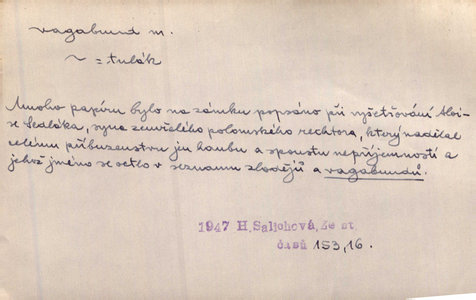 vagabund m.
~ = tulák
Mnoho papíru bylo na zámku popsáno při vyšetřování Aloi-
se Sedláka, syna zemřelého polomského rektora, který nadělal
celému příbuzenstvu jen hanbu a spoustu nepříjemností a
jehož jméno se octlo v seznamu zlodějů a vagabundů.
1947 H. Salichová, Ze st.
časů 153,16.